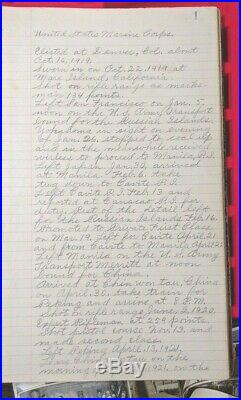 1
United States Marine Corps.
Enlisted at Denver, Col. about
Oct 16, 1919.
Sworn in on Oct. 22, 1919 at
Mare Island, California.
Shot on rifle range as marks-
man 124 points.
Left San Francisco on Jan. 5,
noon on the U.S. Army Transport
bound for the Russian Islands.
Yokohama in sight on evening
of Jan 26, stopped to coal up
and in the meanwhile received
wireless to proceed to Manila, P.I.
Left Japan Jan. 30, arrived
at Manila Feb. 6. take
tug down to Cavite P.I.
Left Cavite P.I. Feb 13 and
reported at Canacao P.I. for
duty. Rest of the detail left
for the Russian Islands Feb. 16.
Promoted to Private First Class
on Mar. 19. Left for Cavite April 21
and from Cavite to Manila April 22.
Left Manila on the U.S. Army
Transport Merritt at noon
bound for China.
Arrived at Chin wan tau, China
on April 30, take train for
Peking and arrive at 8 P.M.
Shot on rifle range June 2, 1920,
Expert Rifleman at 259 points.
Shot pistol course Nov 13, and
made second class.
Left Peking April 13, 1921.
Chin wan tau on the
morning of 1921, on the